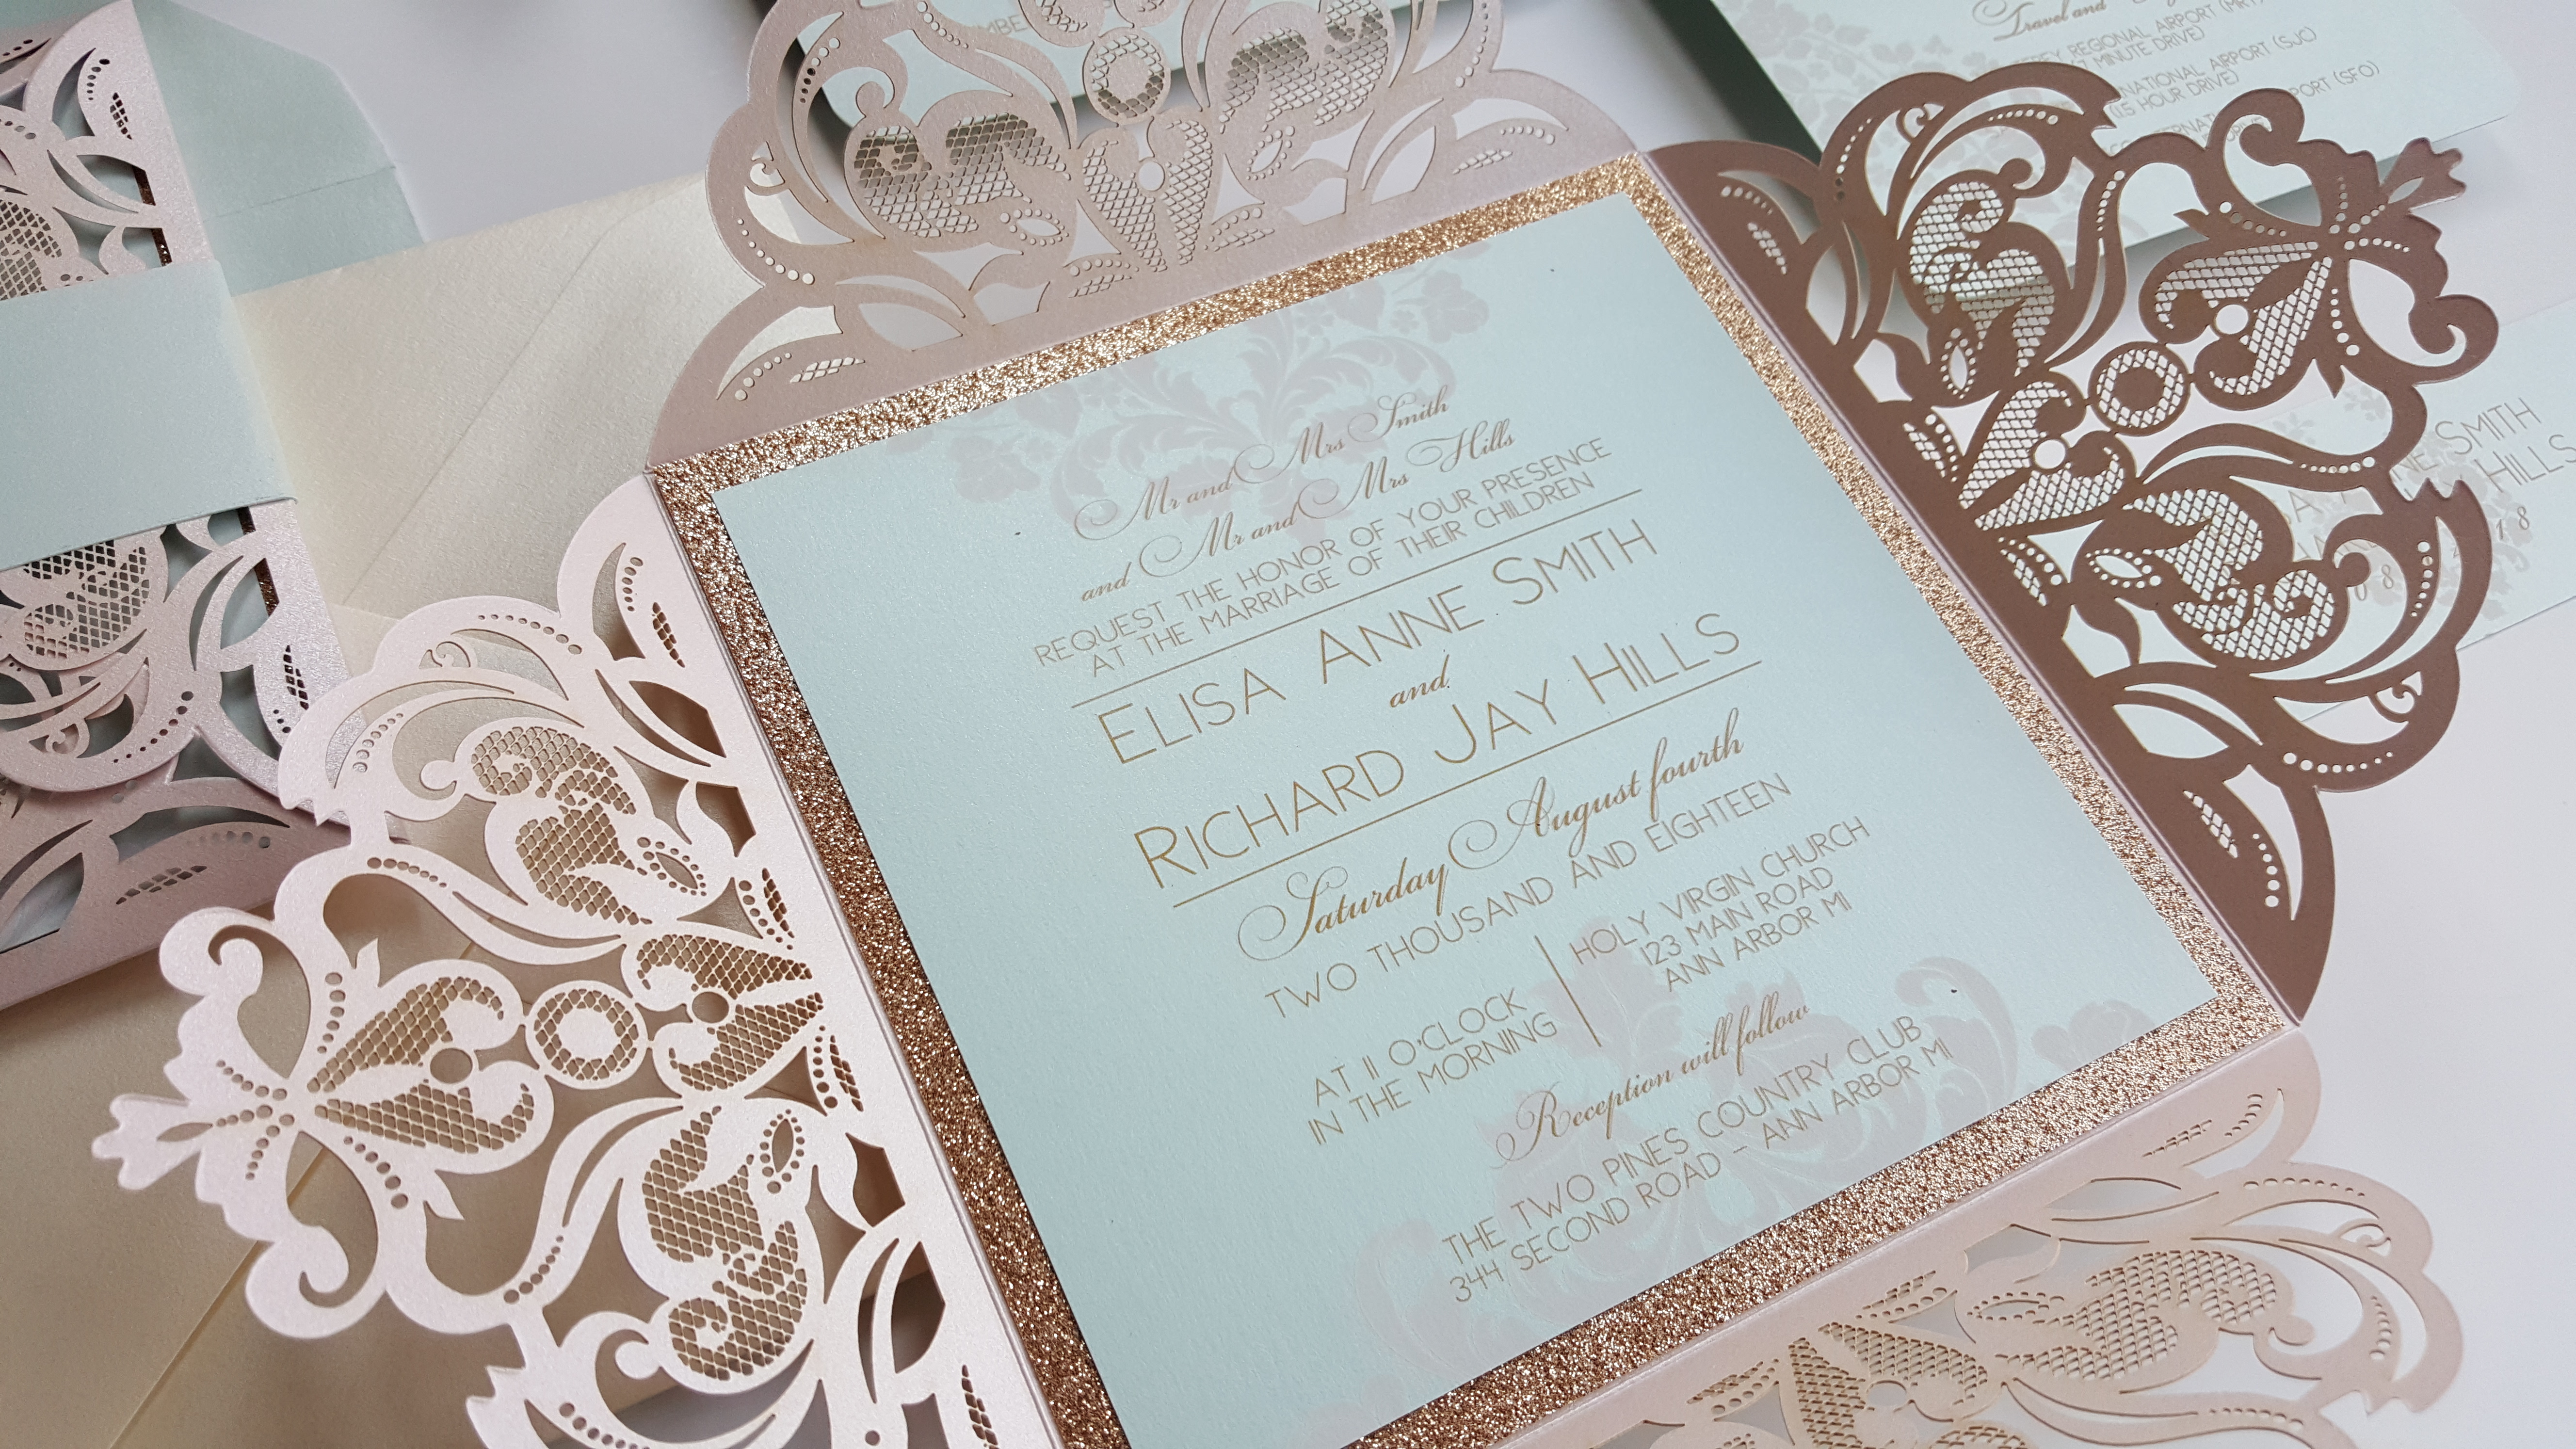 Mr and Mrs Smith
and Mr and Mrs Hills
REQUEST THE HONOR OF YOUR PRESENCE
AT THE MARRIAGE OF THEIR CHILDREN
ELISA ANNE SMITH
and
RICHARD JAY HILLS
Saturday August fourth
TWO THOUSAND AND EIGHTEEN
AT 11 O'CLOCK
IN THE MORNING
HOLY VIRGIN CHURCH
123 MAIN ROAD
ANN ARBOR MI
Reception will follow
THE TWO PINES COUNTRY CLUB
344 SECOND ROAD – ANN ARBOR MI
Travel and
REGIONAL AIRPORT (MRY)
MINUTE DRIVE)
AIRPORT (SJC)
1.5 HOUR DRIVE)
(SFO)
SMITH
HILLS